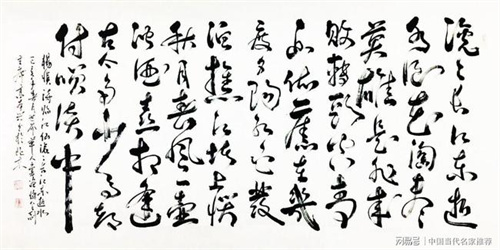 滚滚长江东逝
水浪花淘尽
英雄是非成
败转头空青
山依旧在几
度夕阳红白发
渔樵江渚上惯
秋月春风一壶
浊酒喜相逢
古今多少事都
付笑谈中
杨慎词临江仙滚滚长江东逝水
搜狐号@中国当代名家推荐